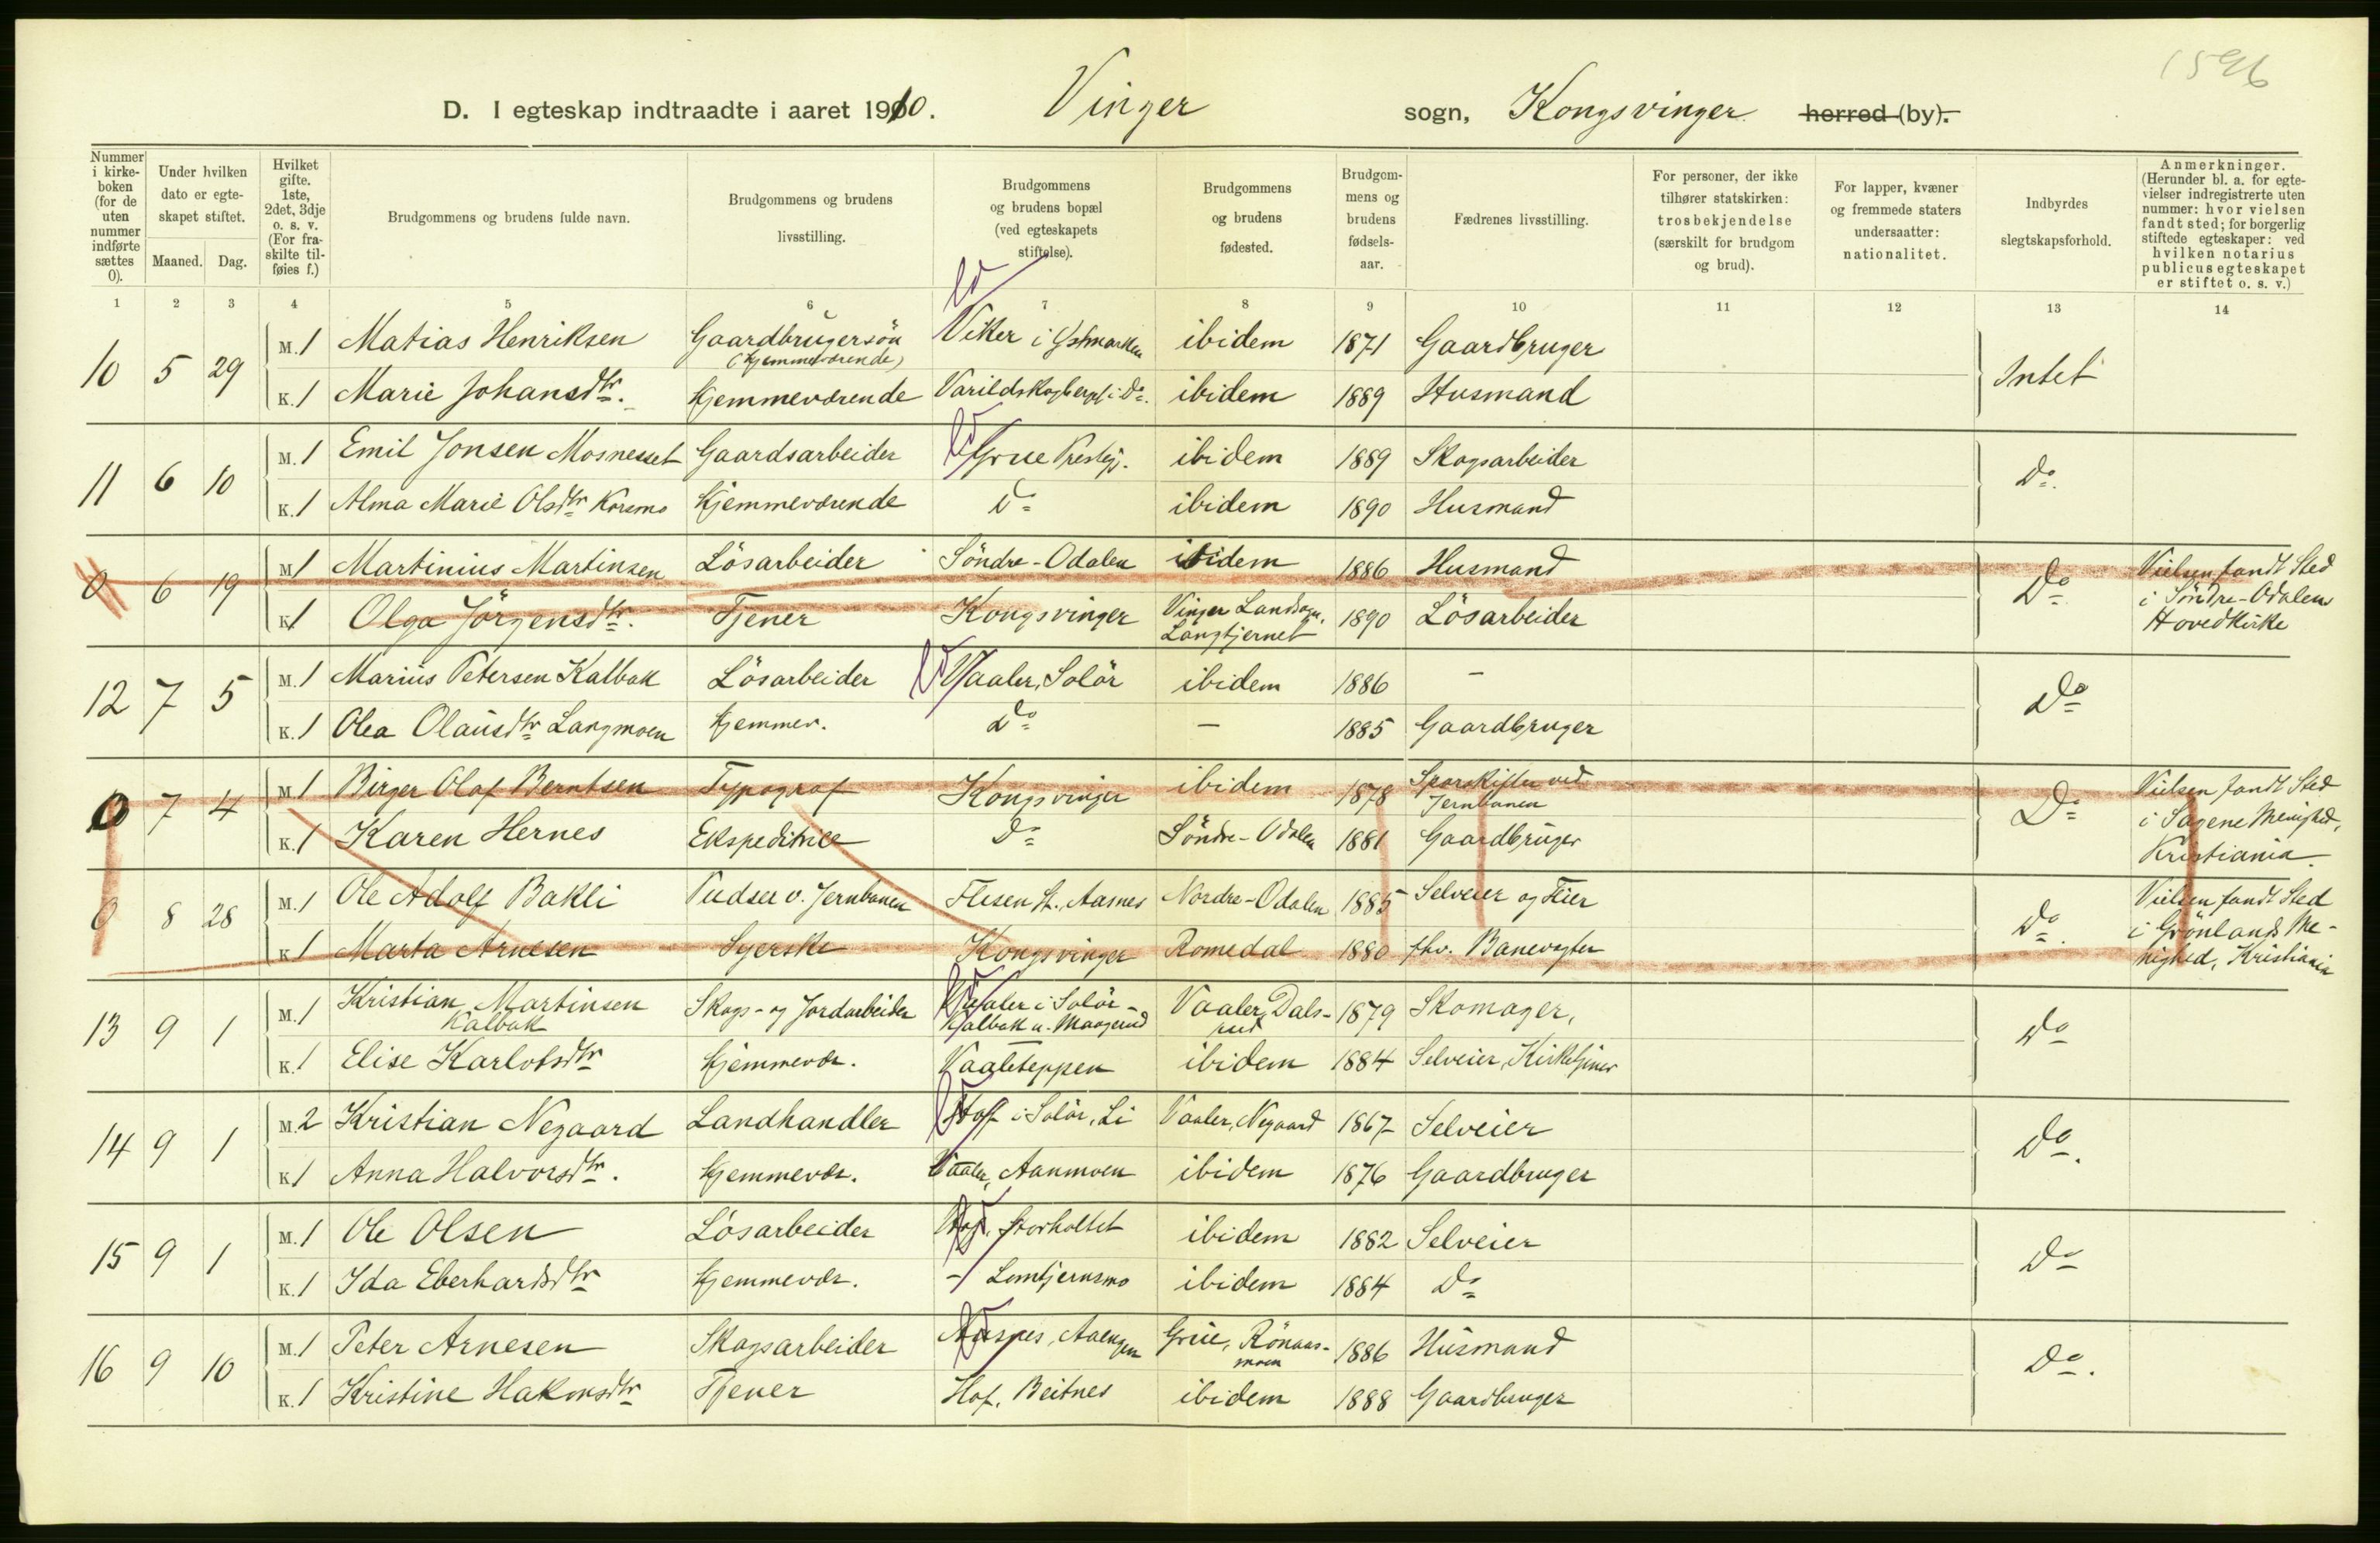 1596
D. I egteskap indtraadte i aaret 1910. Vinger sogn, Kongsvinger herred (by).
Nummer i kirke-boken (for de uten nummer indførte sættes 0).
Under hvilken dato er egte-skapet stiftet.
Maaned. Dag.
Hvilket gifte. 1ste, 2det, 3dje o. s. v. (For fra-skilte til-føies f.)
Brudgommens og brudens fulde navn.
Brudgommens og brudens livsstilling.
Brudgommens og brudens bopæl (ved egteskapets stiftelse).
Brudgommens og brudens fødested.
Brudgom-mens og brudens fødsels-aar.
Fædrenes livsstilling.
For personer, der ikke tilhører statskirken: trosbekjendelse (særskilt for brudgom og brud).
For lapper, kvæner og fremmede staters undersaatter: nationalitet.
Indbyrdes slegtskapsforhold.
Anmerkninger. (Herunder bl. a. for egte-vielser indregistrerte uten nummer: hvor vielsen fandt sted; for borgerlig stiftede egteskaper: ved hvilken notarius publicus egteskapet er stiftet o. s. v.)
1 2 3 4 5 6 7 8 9 10 11 12 13 14
10 5 29 M. 1 Matias Henriksen Gaardbrugersön (hjemmeværende) Vikker i Østmarken ibidem 1871 Gaardbruger Intet
K. 1 Marie Johansdtr. Hjemmeværende Varildskogberget i Do. ibidem 1889 Husmand
11 6 10 M. 1 Emil Jonsen Mosnesset Gaardsarbeider Grue Prestegj. ibidem 1889 Skogsarbeider Do.
K. 1 Alma Marie Olsdtr Korsmo Hjemmeværende Do ibidem 1890 Husmand
0 6 19 M. 1 Martinius Martinsen Lösarbeider Söndre-Odalen ibidem 1886 Husmand Do Vielsen fandt Sted i Söndre-Odalens Hovedkirke
K. 1 Olga Jörgensdtr. Tjener Kongsvinger Vinger Landsogn, Langtjernet 1890 Lösarbeider
12 7 5 M. 1 Marius Petersen Kalbak Lösarbeider Vaaler, Solör ibidem 1886 - Do
K. 1 Olea Olausdtr Langmoen Hjemmev. Do - 1885 Gaardbruger
0 7 4 M. 1 Birger Olaf Berntsen Typograf Kongsvinger ibidem 1878 Sporskifter ved Jernbanen Do Vielsen fandt Sted i Sagene Menighed, Kristiania.
K. 1 Karen Hernes Ekspeditrice Do Söndre-Odalen 1881 Gaardbruger
0 8 28 M. 1 Ole Adolf Bakli Pudser v. Jernbanen Flisen St., Aasnes Nordre-Odalen 1885 Selveier og Feier Do. Vielsen fandt Sted i Grönlands Me-nighed, Kristiania
K. 1 Marta Arnesen Syerske Kongsvinger Romedal 1880 fhv. Banevogter
13 9 1 M. 1 Kristian Martinsen Kalbak Skogs- og Jordarbeider Vaaler i Solör - Kalbak u. Maagerud Vaaler, Dals-rud 1879 Skomager, Do
K. 1 Elise Karlotsdtr Hjemmevær. Vaaleteppen ibidem 1884 Selveier, Kirketjener
14 9 1 M. 2 Kristian Negaard Landhandler Hof i Solör, Li Vaaler, Negaard 1867 Selveier Do.
K. 1 Anna Halvorsdtr. Hjemmevær. Vaaler, Aanmoen ibidem 1876 Gaardbruger
15 9 1 M. 1 Ole Olsen Lösarbeider Hof, Storholtet ibidem 1882 Selveier Do
K. 1 Ida Eberhardsdtr Hjemmevær. - Lomtjernsmo ibidem 1884 Do
16 9 10 M. 1 Peter Arnesen Skogsarbeider Aasnes, Aaengen Grue, Rönaas-moen 1886 Husmand Do.
K. 1 Kristine Hakonsdtr Tjener Hof, Beitnes ibidem 1888 Gaardbruger